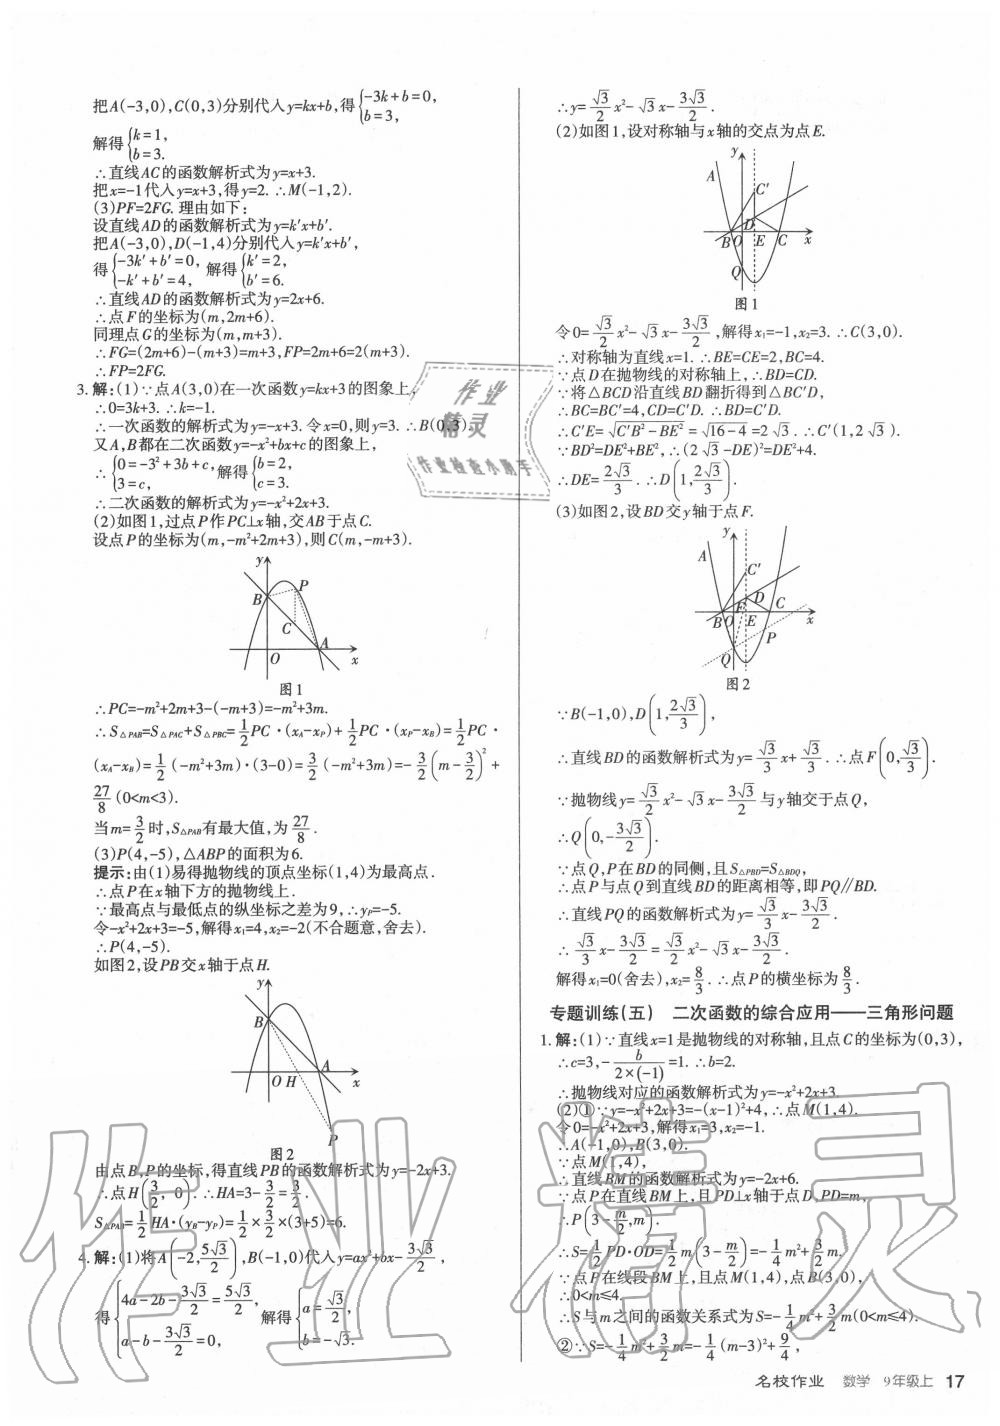 把A(-3,0),C(0,3)分别代入y=kx+b,得{-3k+b=0, b=3,
解得{k=1, b=3.
∴直线AC的函数解析式为y=x+3.
把x=-1代入y=x+3,得y=2. ∴M(-1,2).
(3)PF=2FG. 理由如下:
设直线AD的函数解析式为y=k′x+b′.
把A(-3,0),D(-1,4)分别代入y=k′x+b′,
得{-3k′+b′=0, -k′+b′=4, 解得{k′=2, b′=6.
∴直线AD的函数解析式为y=2x+6.
∴点F的坐标为(m,2m+6).
同理点G的坐标为(m,m+3).
∴FG=(2m+6)-(m+3)=m+3,FP=2m+6=2(m+3).
∴FP=2FG.
3.解:(1)∵点A(3,0)在一次函数y=kx+3的图象上,
∴0=3k+3. ∴k=-1.
∴一次函数的解析式为y=-x+3. 令x=0,则y=3. ∴B(0,3).
又A,B都在二次函数y=-x²+bx+c的图象上,
∴{0=-3²+3b+c, 3=c, 解得{b=2, c=3.
∴二次函数的解析式为y=-x²+2x+3.
(2)如图1,过点P作PC⊥x轴,交AB于点C.
设点P的坐标为(m,-m²+2m+3),则C(m,-m+3).
y
B
P
C
A
O
x
图1
∴PC=-m²+2m+3-(-m+3)=-m²+3m.
∴S△PAB=S△PAC+S△PBC=1/2PC·(xA-xP)+1/2PC·(xP-xB)=1/2PC·
(xA-xB)=1/2(-m²+3m)·(3-0)=3/2(-m²+3m)=-3/2(m-3/2)²+
27/8(0<m<3).
当m=3/2时,S△PAB有最大值,为27/8.
(3)P(4,-5),△ABP的面积为6.
提示:由(1)易得抛物线的顶点坐标(1,4)为最高点.
∴点P在x轴下方的抛物线上.
∵最高点与最低点的纵坐标之差为9,∴yP=-5.
令-x²+2x+3=-5,解得x₁=4,x₂=-2(不合题意,舍去).
∴P(4,-5).
如图2,设PB交x轴于点H.
y
B
O H
A
x
P
图2
由点B,P的坐标,得直线PB的函数解析式为y=-2x+3.
∴点H(3/2,0). ∴HA=3-3/2=3/2.
S△PAB=1/2HA·(yB-yP)=1/2×3/2×(3+5)=6.
4.解:(1)将A(-2,5√3/2),B(-1,0)代入y=ax²+bx-3√3/2,
得{4a-2b-3√3/2=5√3/2, a-b-3√3/2=0, 解得{a=√3/2, b=-√3.
∴y=√3/2x²-√3x-3√3/2.
(2)如图1,设对称轴与x轴的交点为点E.
y
A
C′
D
B O E C x
Q
图1
令0=√3/2x²-√3x-3√3/2,解得x₁=-1,x₂=3. ∴C(3,0).
∴对称轴为直线x=1. ∴BE=CE=2,BC=4.
∵点D在抛物线的对称轴上,∴BD=CD.
∵将△BCD沿直线BD翻折得到△BC′D,
∴BC=BC′=4,CD=C′D. ∴BD=C′D.
∴C′E=√(C′B²-BE²)=√(16-4)=2√3. ∴C′(1,2√3).
∵BD²=DE²+BE²,∴(2√3-DE)²=DE²+4.
∴DE=2√3/3. ∴D(1,2√3/3).
(3)如图2,设BD交y轴于点F.
y
A
C′
F D
B O E C x
P
Q
图2
∵B(-1,0),D(1,2√3/3),
∴直线BD的函数解析式为y=√3/3x+√3/3. ∴点F(0,√3/3).
∵抛物线y=√3/2x²-√3x-3√3/2与y轴交于点Q,
∴Q(0,-3√3/2).
∵点Q,P在BD的同侧,且S△PBD=S△BDQ,
∴点P与点Q到直线BD的距离相等,即PQ∥BD.
∴直线PQ的函数解析式为y=√3/3x-3√3/2.
∴√3/3x-3√3/2=√3/2x²-√3x-3√3/2.
解得x₁=0(舍去),x₂=8/3. ∴点P的横坐标为8/3.
专题训练(五) 二次函数的综合应用——三角形问题
1.解:(1)∵直线x=1是抛物线的对称轴,且点C的坐标为(0,3),
∴c=3,-b/(2×(-1))=1. ∴b=2.
∴抛物线对应的函数解析式为y=-x²+2x+3.
(2)①∵y=-x²+2x+3=-(x-1)²+4,∴点M(1,4).
令0=-x²+2x+3,解得x₁=3,x₂=-1.
∴A(-1,0),B(3,0).
∵点M(1,4),
∴直线BM的函数解析式为y=-2x+6.
∵点P在直线BM上,且PD⊥x轴于点D,PD=m,
∴P(3-m/2,m).
∴S=1/2PD·OD=1/2m(3-m/2)=-1/4m²+3/2m.
∵点P在线段BM上,且点M(1,4),点B(3,0),
∴0<m≤4.
∴S与m之间的函数关系式为S=-1/4m²+3/2m(0<m≤4).
②∵S=-1/4m²+3/2m=-1/4(m-3)²+9/4,
名校作业 数学 9年级上 17
作业
精灵
作业检查小助手
作业精灵